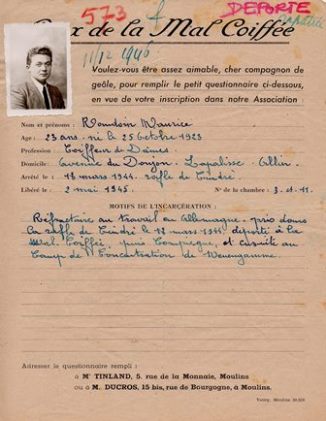 573
f
DEPORTÉ
Ceux de la Mal Coiffée
11/12 1946
Voulez-vous être assez aimable, cher compagnon de
geôle, pour remplir le petit questionnaire ci-dessous,
en vue de votre inscription dans notre Association
Nom et prénoms : Maurice
Age : 23 ans. né le 25 octobre 1923
Profession : Coiffeur de Dames
Domicile : Avenue du Donjon. Lapalisse Allier
Arrêté le : 18 mars 1944. rafle de Cindré
Libéré le : 2 mai 1945. N° de la chambre : 3 et 11.
MOTIFS DE L'INCARCÉRATION :
Réfractaire au travail en Allemagne. pris dans
la rafle de Cindré le 18 mars 1944. déporté à la
Mal Coiffée. puis Compiègne, et ensuite au
Camp de Concentration de Neuengamme.
Adresser le questionnaire rempli :
à Mr TINLAND, 5, rue de la Monnaie, Moulins
ou à M. DUCROS, 15 bis, rue de Bourgogne, à Moulins.
Moulins